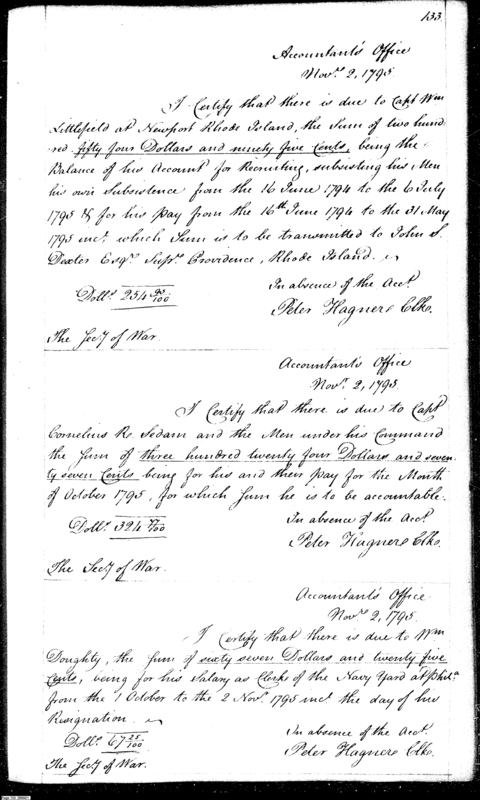 133
Accountant's Office
Nov.r 2, 1795
I Certify that there is due to Capt Wm
Littlefield at Newport Rhode Island, the Sum of two hund
red fifty four Dollars and ninety five Cents, being the
Balance of his Account for Recruiting, subsisting his Men
his own Subsistence from the 16 June 1794 to the 6 July
1795 & for his pay from the 16th June 1794 to the 31 May
1795 inc.t which Sum is to be transmitted to John S.
Dexter Esq.r Sup.r Providence, Rhode Island.
In absence of the Acc.t
Doll.s 254 /100
Peter Hagner Clk.
The Sec.y of War.
Accountant's Office
Nov.r 2, 1795
I Certify that there is due to Capt
Cornelius R. Sedam and the Men under his Command
the Sum of three hundred twenty four Dollars and seven
ty seven Cents being for his and their pay for the Month
of October 1795, for which Sum he is to be accountable.
Doll.s 324 77/100
In absence of the Acc.t
Peter Hagner Clk.
The Sec.y of War.
Accountant's Office
Nov.r 2, 1795
I Certify that there is due to Wm
Doughty, the Sum of sixty seven Dollars and twenty five
Cents, being for his Salary as Clerk of the Navy Yard at Phil.a
from the 1 October to the 2 Nov.r 1795 inc.t the day of his
Resignation.
In absence of the Acc.t
Doll.s 67 25/100
Peter Hagner Clk.
The Sec.y of War.